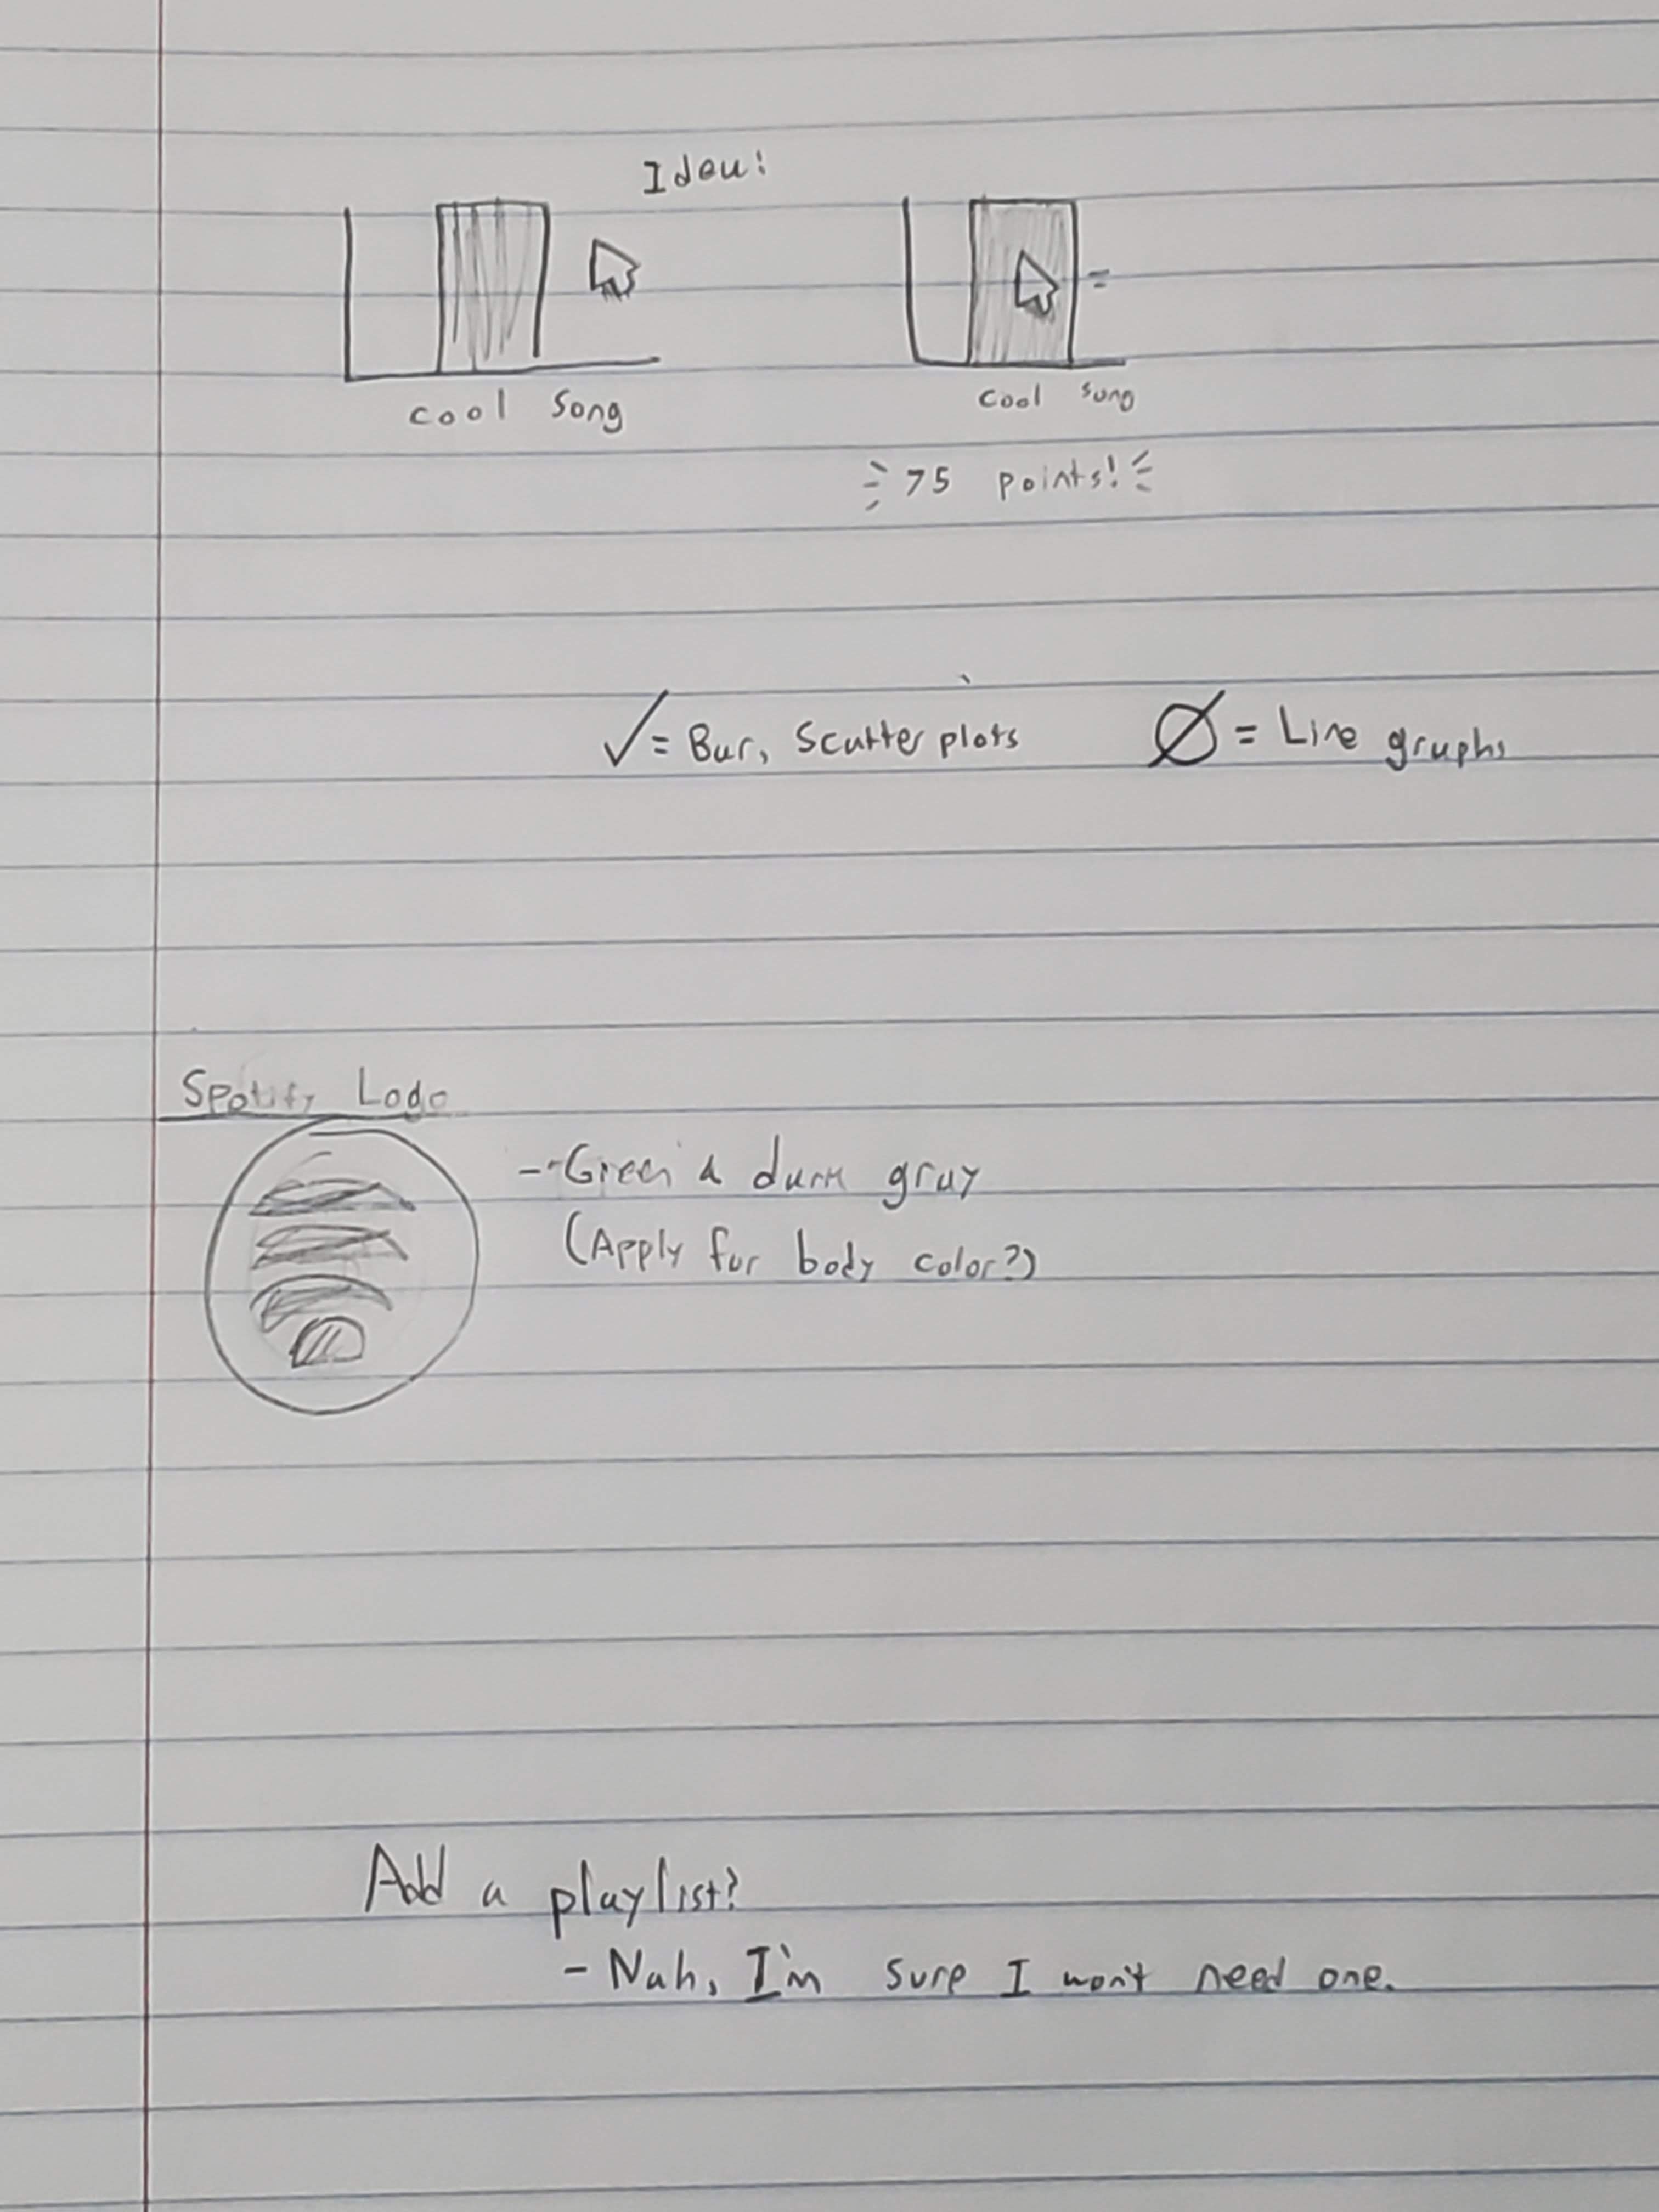 Idea!
cool song
cool song
75 points!
✓= Bar, Scatter plots
Ø = Line graphs
Spotify Logo
-Green & dark gray
(Apply for body color?)
Add a playlist?
- Nah, I'm sure I won't need one.